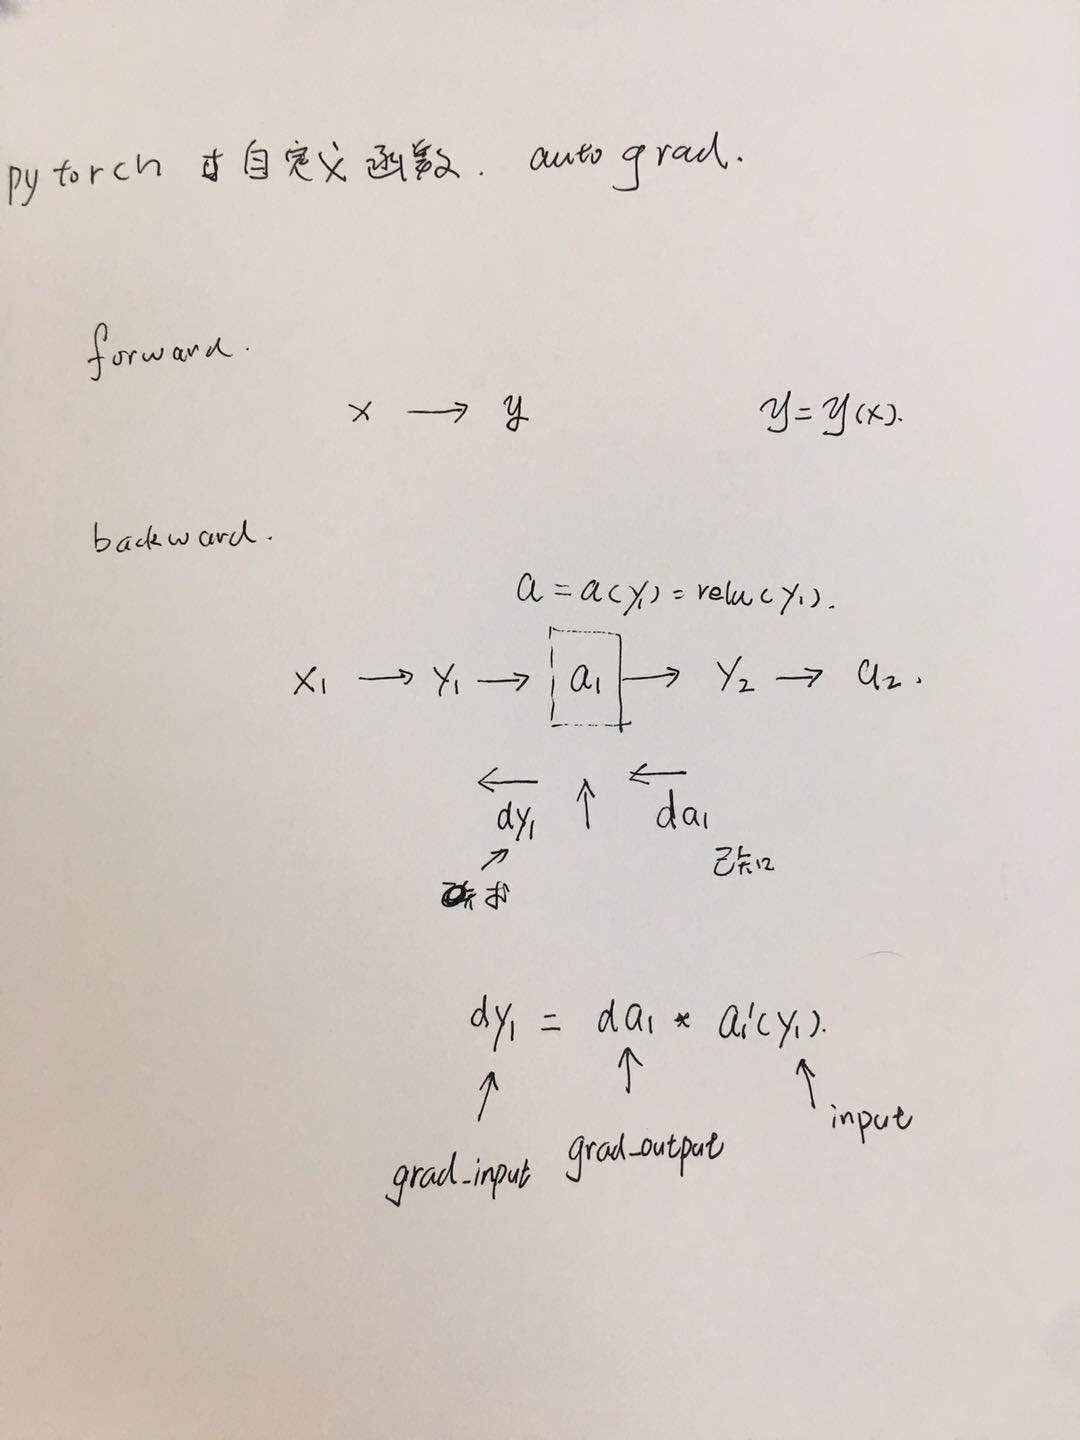 pytorch 自定义函数. autograd.
forward.
x → y y = y(x).
backward.
a = a(y₁) = relu(y₁).
x₁ → y₁ → a₁ → y₂ → a₂.
← ↑ ←
dy₁ da₁
↗ 已知
求
dy₁ = da₁ * a₁'(y₁).
↑ ↑ ↑
input
grad_output
grad_input